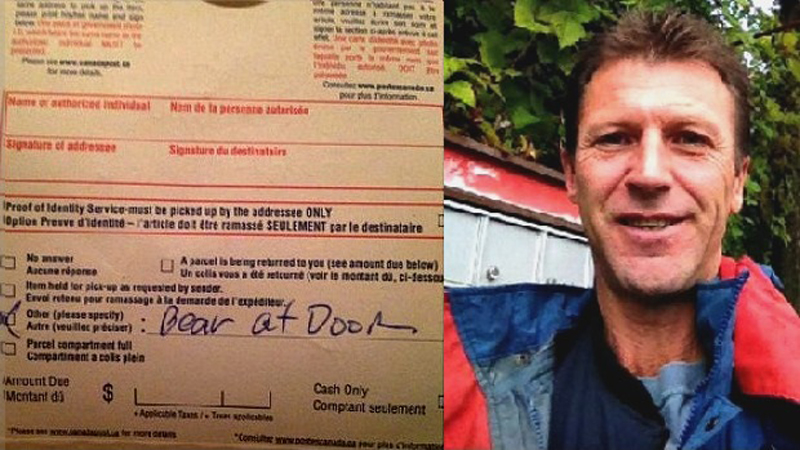 address to pick up the item,
please print his/her name and sign
below. One piece of government
authorized individual MUST be
Please see www.canadapost.ca
for more details.
une personne n'habitant pas à la
même adresse à ramasser votre
article, veuillez écrire son nom et
signer la section ci-après
effet. Une carte avec photo
par le gouvernement sur
laquelle le même nom que
l'individu autorisé DOIT être
présentée
Consultez www.postescanada.ca
pour plus d'information
Name of authorized individual
Nom de la personne autorisée
Signature of addressee
Signature du destinataire
Proof of Identity Service-must be picked up by the addressee ONLY
Option Preuve d'identité – l'article doit être ramassé SEULEMENT par le destinataire
No answer
Aucune réponse
A parcel is being returned to you (see amount due below)
Un colis vous a été retourné (voir le montant dû, ci-dessou
Item held for pick-up as requested by sender.
Envoi retenu pour ramassage à la demande de l'expéditeur.
Other (please specify)
Autre (veuillez préciser) : Bear at Door
Parcel compartment full
Compartiment à colis plein
Amount Due
Montant dû
$
+ Applicable Taxes / + Taxes applicables
Cash Only
Comptant seulement
*Please see www.canadapost.ca for more details
*Consultez www.postescanada.ca pour plus d'informat